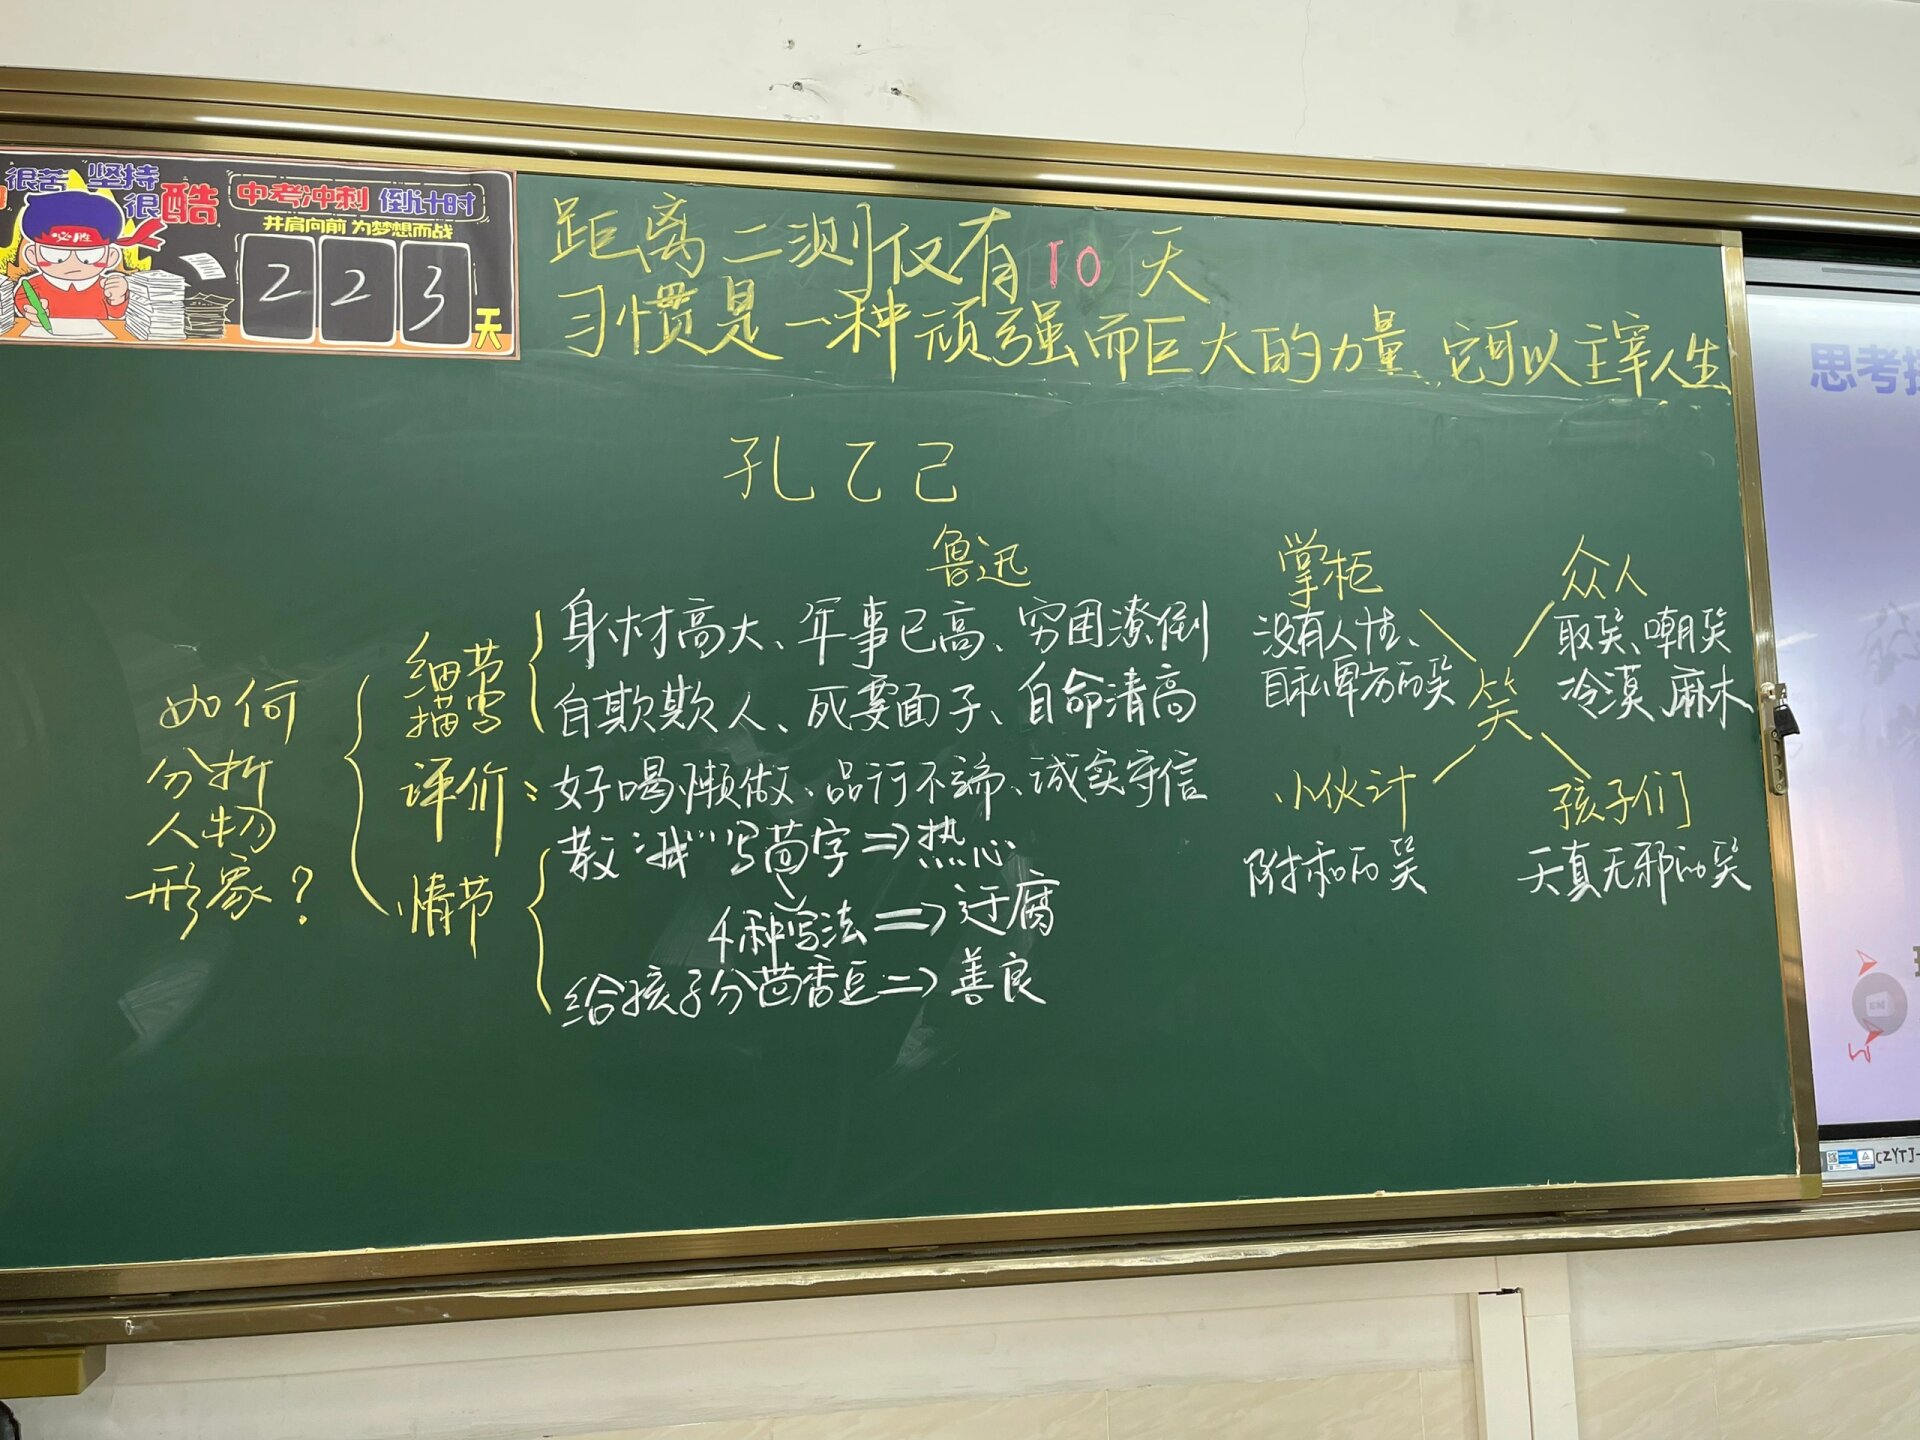 很苦 坚持
很酷
中考冲刺 倒计时
并肩向前 为梦想而战
必胜
223天
距离二测仅有10天
习惯是一种顽强而巨大的力量,它可以主宰人生
思考
孔乙己
鲁迅
如何
分析
人物
形象?
细节
描写
身材高大、年事已高、穷困潦倒
自欺欺人、死要面子、自命清高
评价:好喝懒做、品行不端、诚实守信
情节
教“我”写茴字⇒热心
4种写法⇒迂腐
给孩子分茴香豆⇒善良
笑
掌柜
没有人性、
自私卑劣的笑
众人
取笑、嘲笑
冷漠 麻木
小伙计
附和的笑
孩子们
天真无邪的笑
CZYTJ-